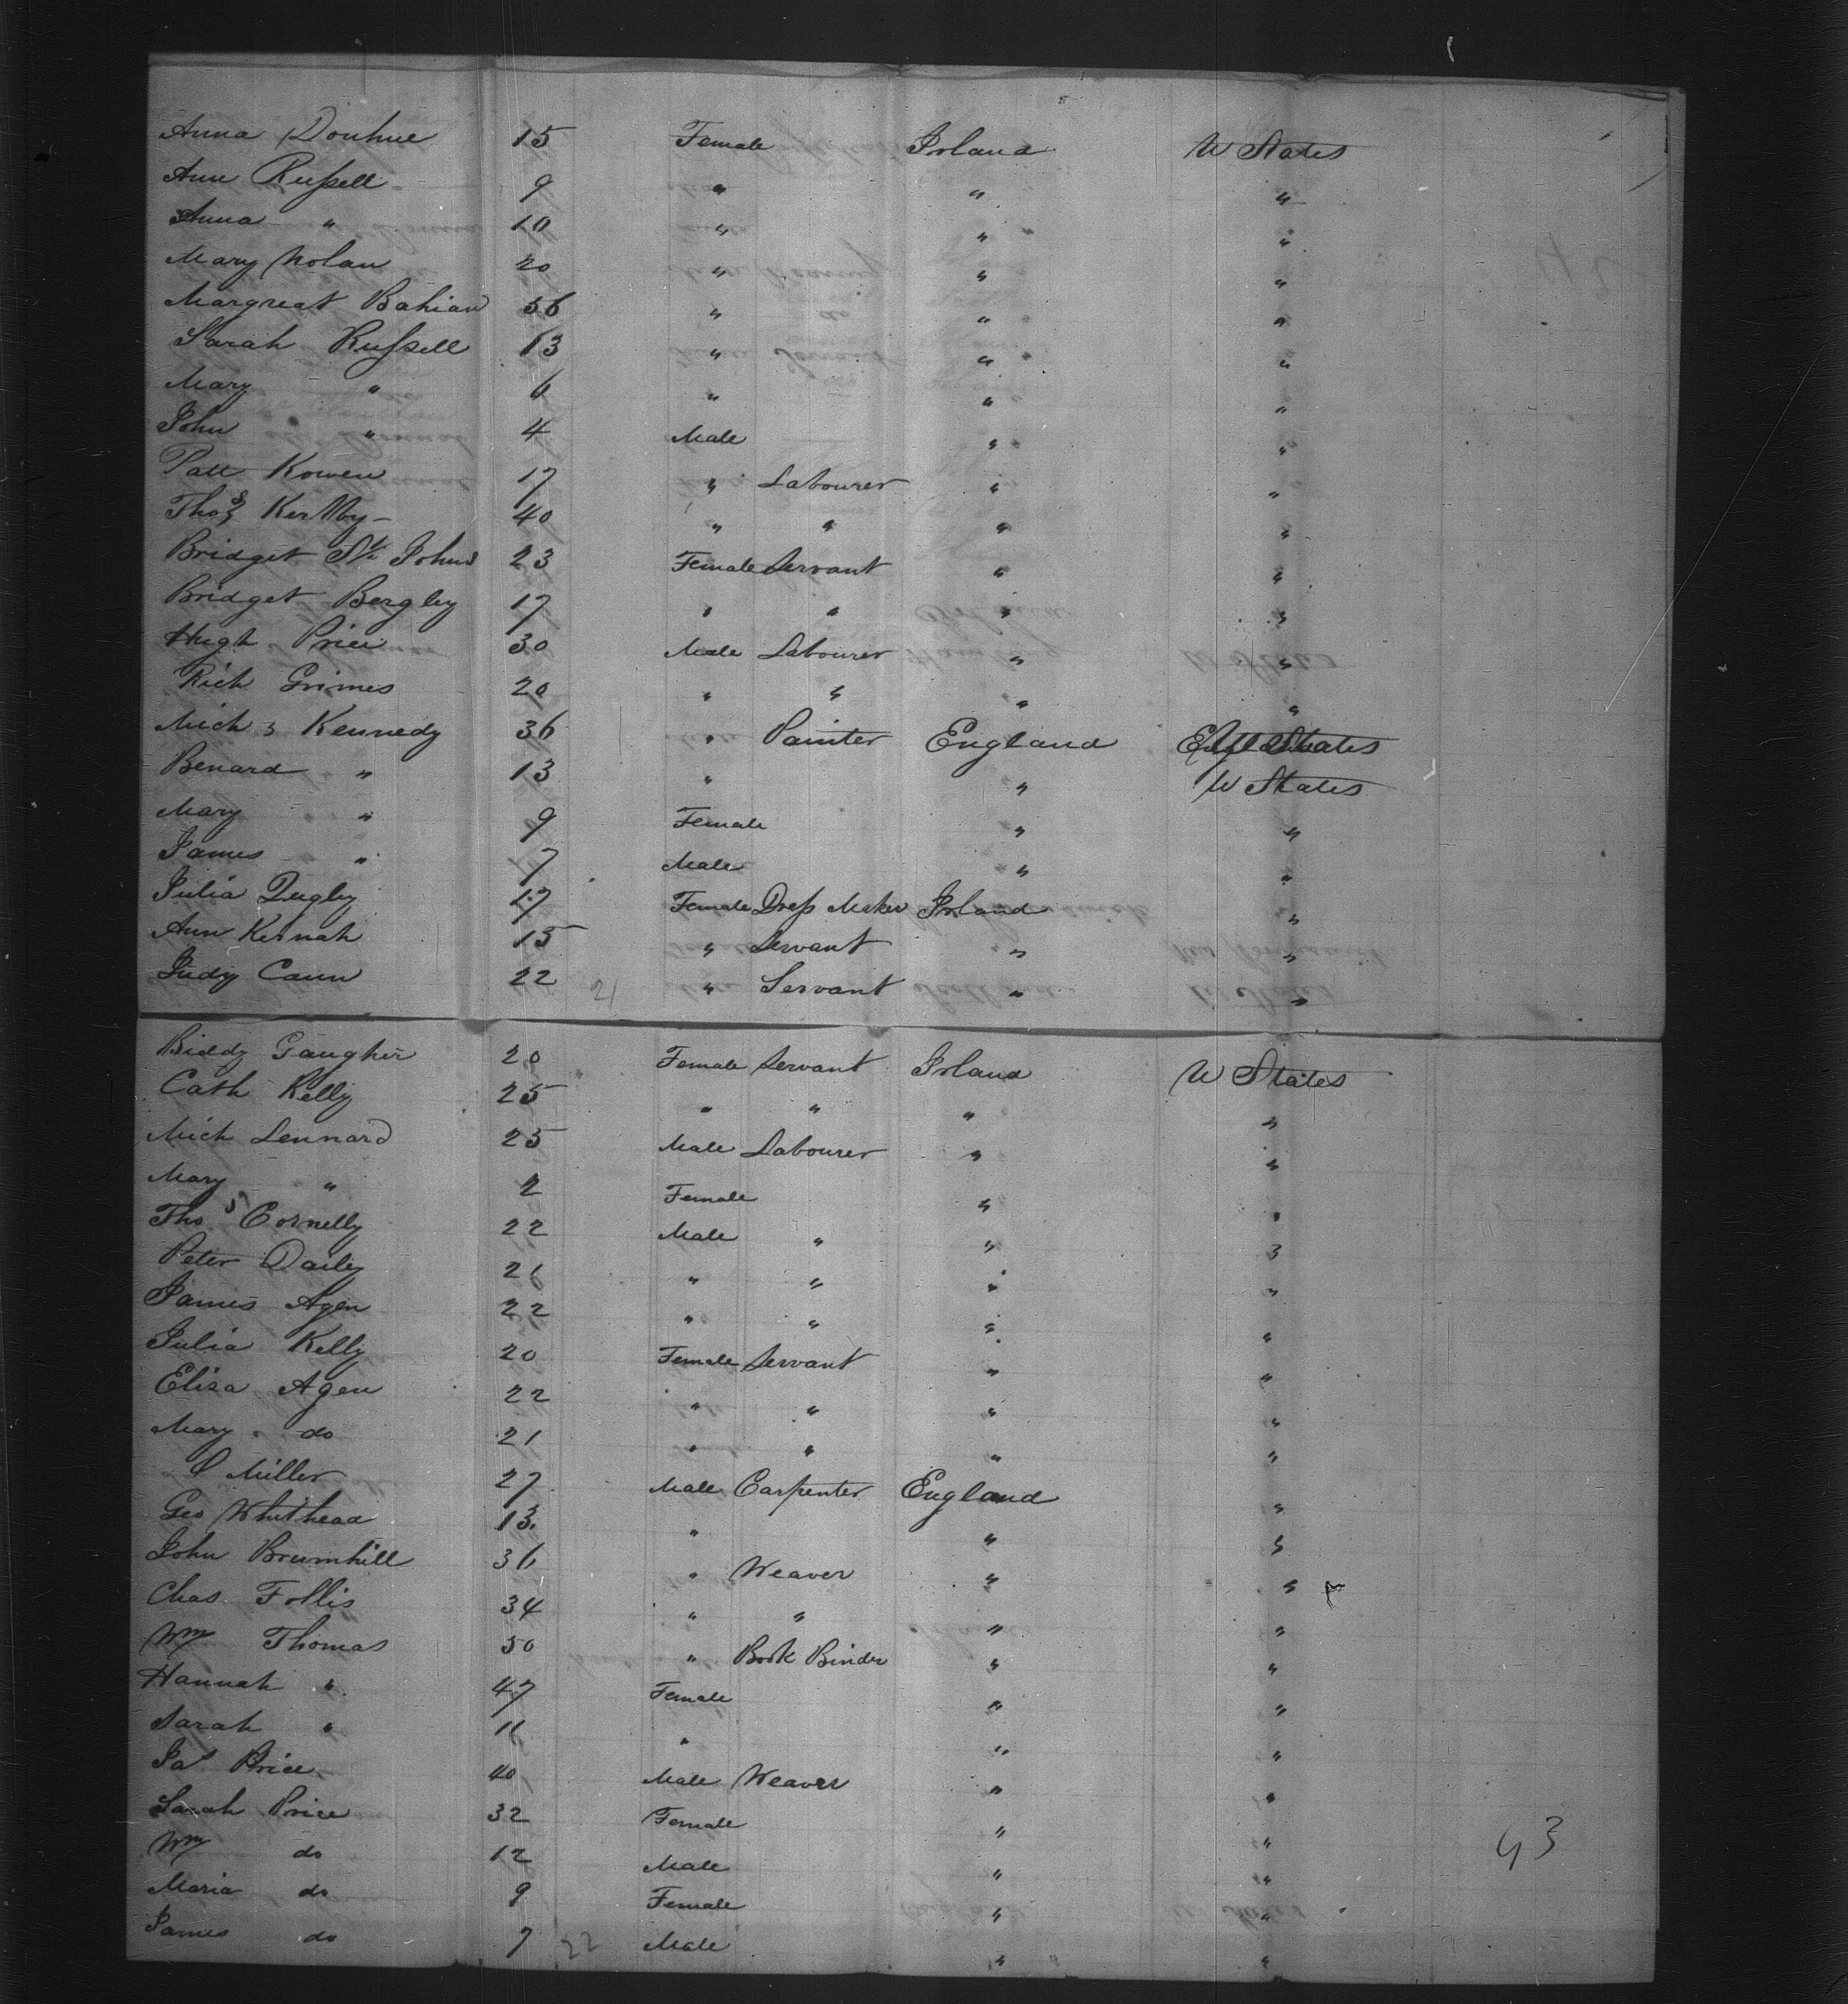 Anna Donhue 15 Female Irland U States
Ann Russell 9 " " "
Anna " 10 " " "
Mary Nolan 20 " " "
Margreat Bahian 56 " " "
Sarah Russell 13 " " "
Mary " 6 " " "
John " 4 Male " "
Patt Kowen 17 " Labourer " "
Thos 40 " " " "
Bridget St Johns 23 Female Servant " "
Bridget Bergley 17 " " " "
Hugh Price 30 Male Labourer " "
Rich Grimes 20 " " " "
Mich Kennedy 36 " Painter England U States
Benard " 13 " " U States
Mary " 9 Female " "
James " 7 Male " "
Julia Dugley 17 Female Dress Maker Irland "
Ann Kernah 15 " Servant " "
Judy Cann 22 21 " Servant " "
Biddy Gaugher 20 Female Servant Irland U States
Cath Kelly 25 " " " "
Mich Lennard 25 Male Labourer " "
Mary " 2 Female " "
Thos Cornelly 22 Male " " "
Peter Daily 21 " " " "
James Agen 22 " " " "
Julia Kelly 20 Female Servant " "
Eliza Agen 22 " " " "
Mary do 21 " " " "
Miller 27 Male Carpenter England "
Geo Whithead 13 " " "
John Brumhill 36 " Weaver " "
Chas Follis 34 " " " "
Wm Thomas 50 " Book Binder " "
Hannah " 47 Female " "
Sarah " 11 " " "
Jas Price 40 Male Weaver " "
Sarah Price 32 Female " "
Wm do 12 Male " "
43
Maria do 9 Female " "
James do 7 22 Male " "